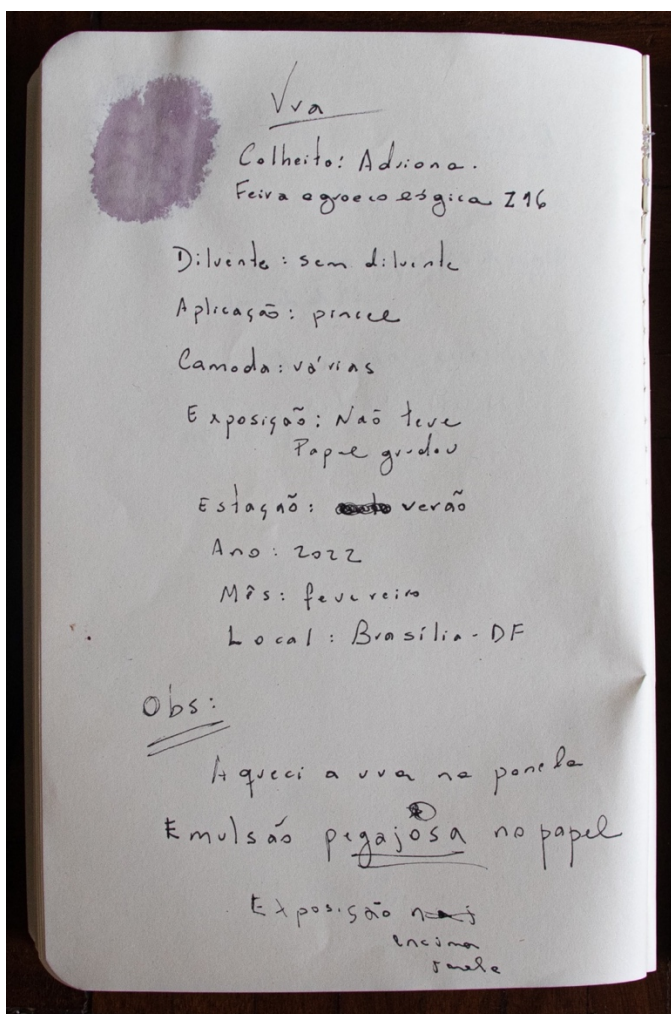 Uva
Colheita: Adriana.
Feira agroecológica 216
Diluente: sem diluente
Aplicação: pincel
Camada: várias
Exposição: Não teve
Papel grudou
Estação: verão
Ano: 2022
Mês: fevereiro
Local: Brasília - DF
Obs:
Aqueci a uva na panela
Emulsão pegajosa no papel
Exposição
encima